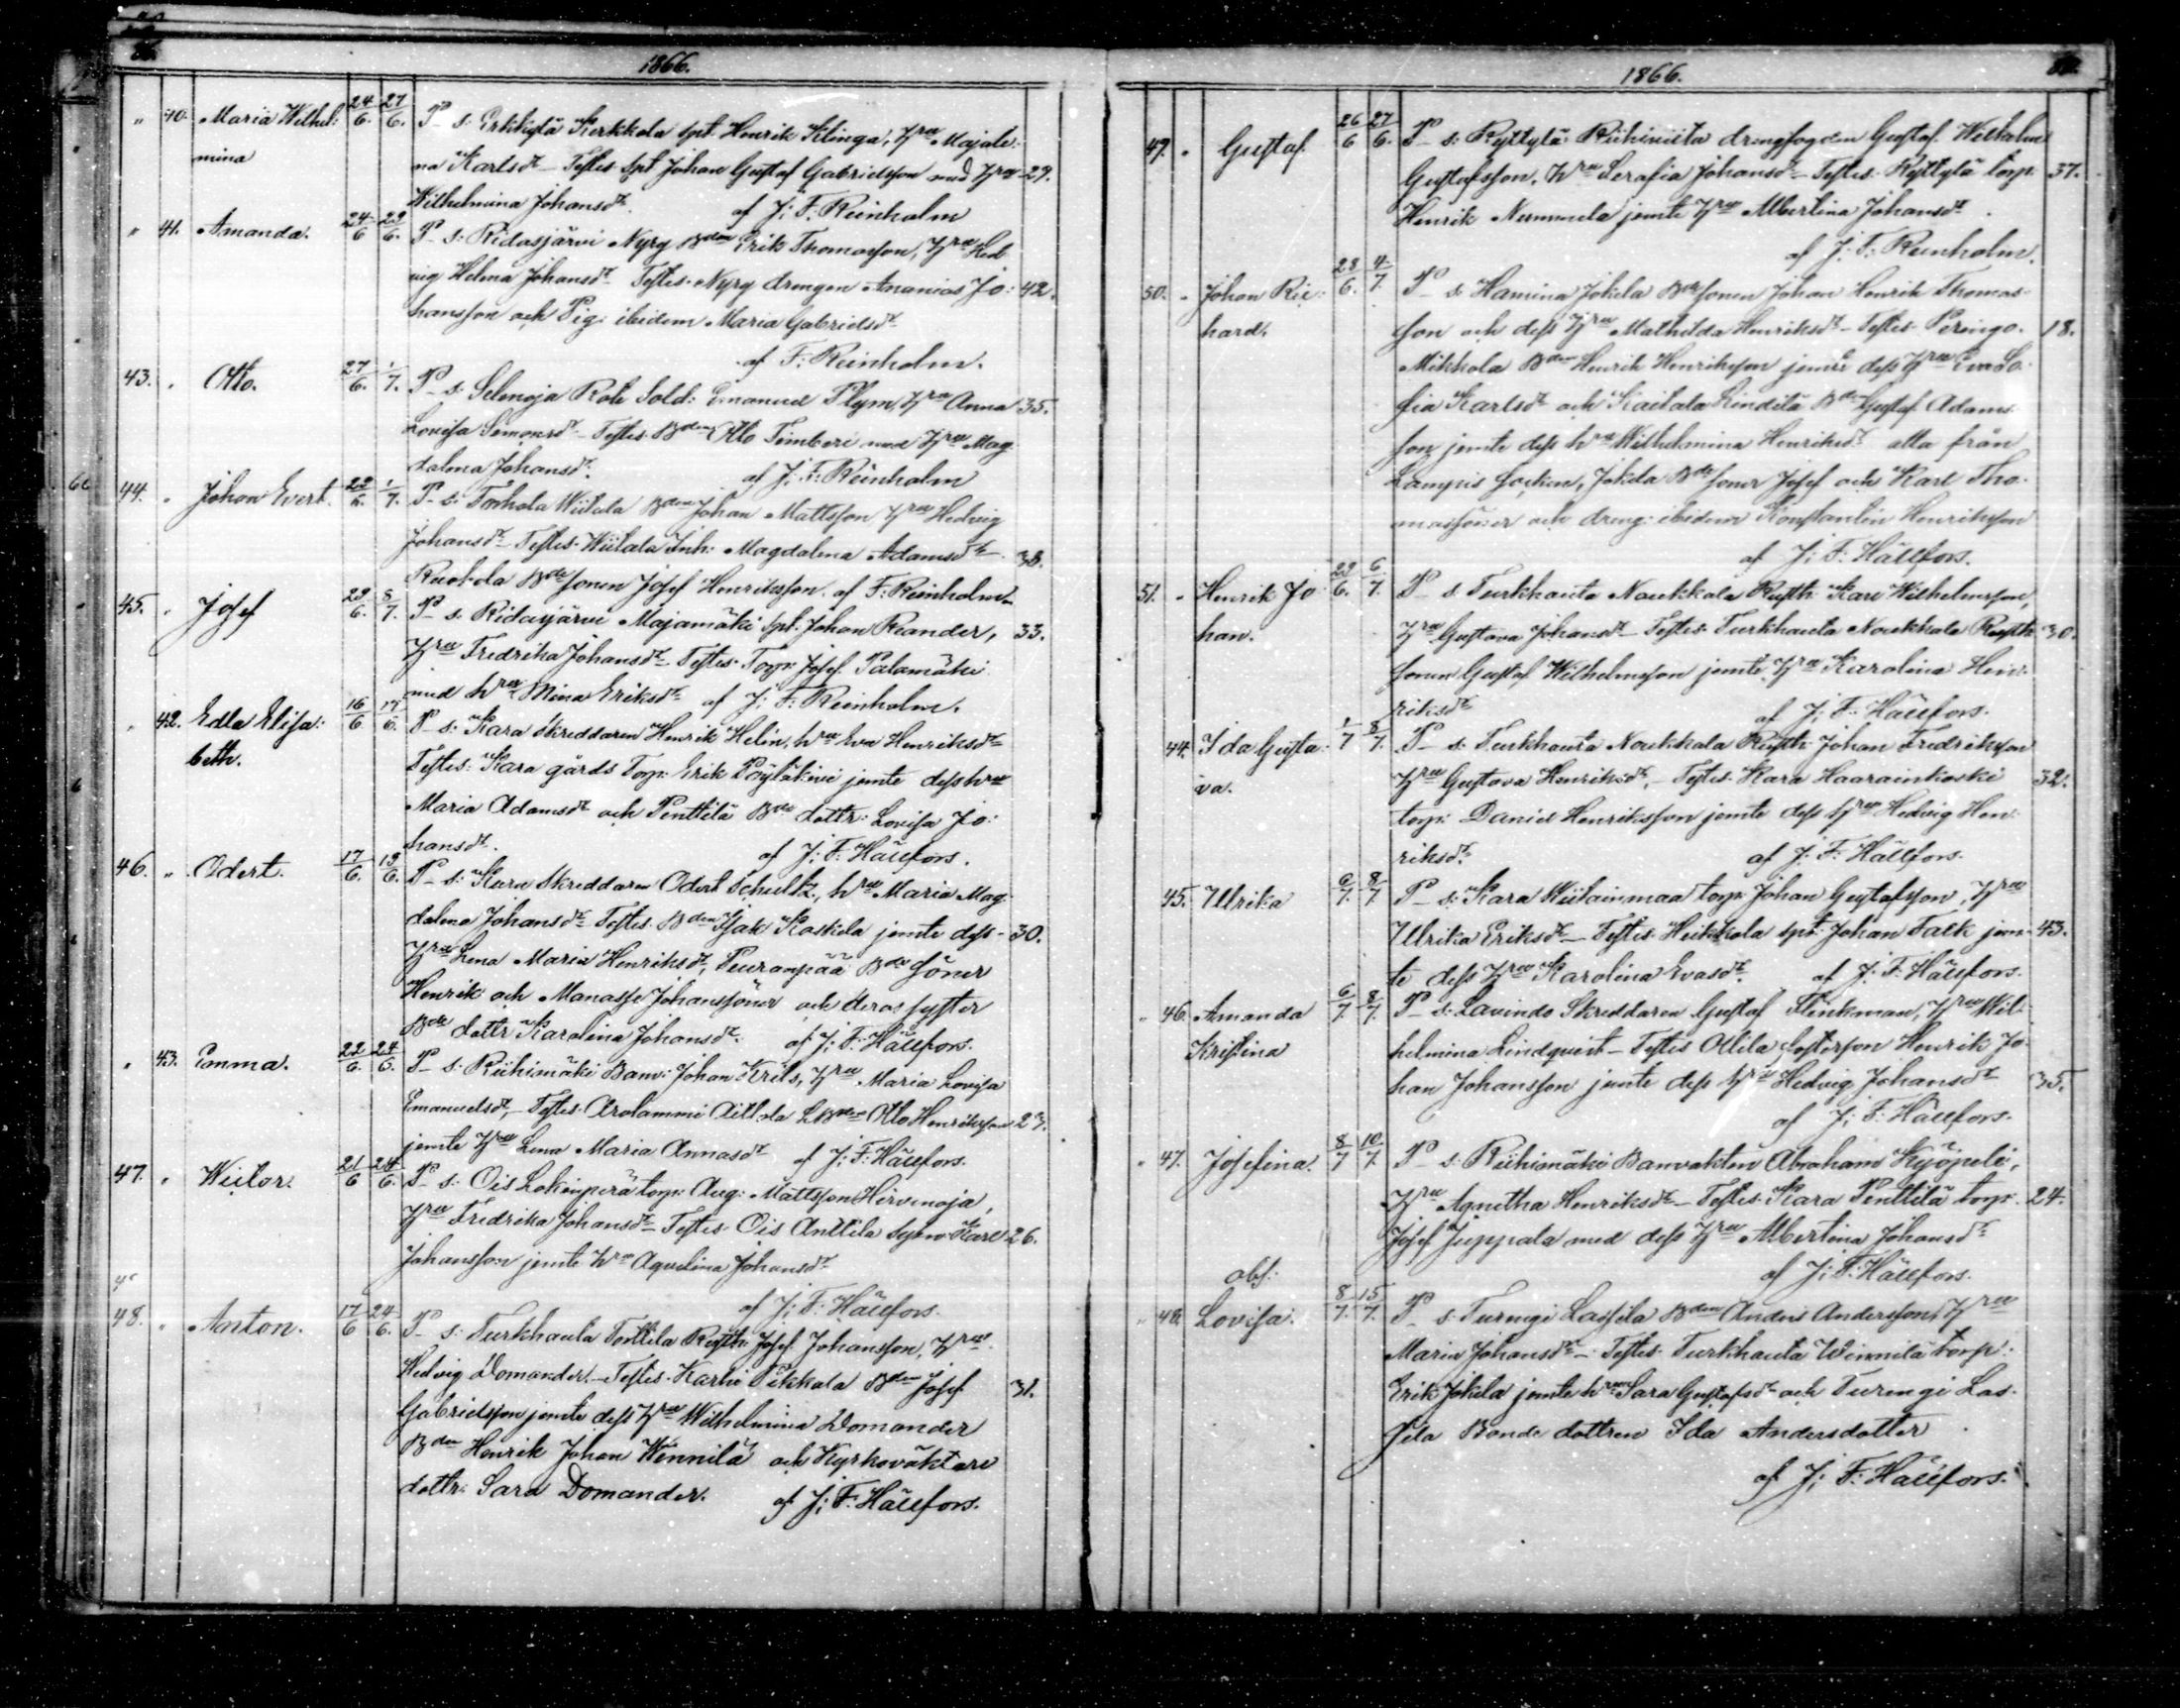 1866.
" 40. Maria Wilhel: 24/6. 27/6. P_ s: Erkkylä Kerkkola spt Henrik Klinga, Hru Majale:
mina na Karlsdr – Testes Spt Johan Gustaf Gabrielsson med Hru 29.
Wilhelmina Johansdr. af J: F: Reinholm
" 41. Amanda. 24/6 29/6. P_ s: Ridasjärvi Nyry Bden Erik Thomasson, Hru Hed
vig Helena Johansdr Testes Nyry drengen Ananias Jo: 42.
hansson och Pig: ibidem Maria Gabrielsdr
af F: Reinholm.
43. " Otto. 27/6. 1/7. P_ s: Selenoja Rote Sold: Emanuel Plym, Hru Anna 35.
Lovisa Simonsdr – Testes Bden Otto Timberi med Hru Mag
dalena Johansdr. af J: F: Reinholm
44. " Johan Evert. 1/7. P_ s: Torhola Wiitala Bden Johan Mattsson Hru Hedvig
Johansdr – Testes Wiitala Inh: Magdalena Adamsdr 38.
Bdesonen Josef Henriksson. af F: Reinholm
45. " Josef 29/6. 8/7. P_ s: Ridasjärvi Majamäki Spt: Johan Reander, 33.
Hru Fredrika Johansdr. Testes Torp: Josef Palamäki
med hru Mina Eriksdr af J: F: Reinholm.
" 42. Edla Elisa: 16/6 17/6. P_ s: Kara skreddaren Henrik Helin, hru Eva Henriksdr
beth. Testes: Kara gårds Torp: Erik Pöytäkivi jemte dess hru
Maria Adamsdr och Penttilä Bde dottr: Lovisa Jo:
hansdr. af J: F: Hällfors.
46. " Odert. 17/6. 19/6. P_ s: Kara Skreddaren Odert Schultz, hru Maria Mag
dalena Johansdr Testes Bden Isak Kaskela jemte dess 30.
Hru Lena Maria Henriksdr, Peuranpää Bde söner
Henrik och Manasse Johanssöner och deras syster
Bde dottr Karolina Johansdr. af J: F: Hällfors.
" 43. Emma. 22/6. 24/6. P_ s: Riihimäki Banv: Johan Krils, Hru Maria Lovisa
Emanuelsdr, – Testes: Arolammi Aittola Otto Henriksson 27.
jemte Hru Lena Maria Annasdr af J: F: Hällfors.
47. " Wiktor. 21/6 24/6. P_ s: Ois Lokinperä torp: Aug: Mattsson Hirvenoja,
Hru Fredrika Johansdr – Testes Ois Anttila Karl 26.
Johansson jemte hru Aqvelina Johansdr
af J: F: Hällfors.
48. " Anton. 17/6 24/6. P_ s: Turkhauta Tonttila Rusth: Josef Johansson, Hru
Hedvig Domander. – Testes Karhi Pekkala Bden Josef 31.
Gabrielsson jemte dess Hru Wilhelmina Domander
Bden Henrik Johan Wennilä och Kyrkovaktare
dottr: Sara Domander. af J: F: Hällfors.
1866.
49. " Gustaf. 26/6 27/6. P_ s: Ryttylä Riihiviita drengfogden Gustaf Wilhelm
Gustafsson, hru Serafia Johansdr – Testes Ryttylä torp: 37.
Henrik Nummela jemte Hru Albertina Johansdr
af J: F: Reinholm.
50. " Johan Ric: 28/6. 4/7. P_ s: Hamina Jokela Bdesonen Johan Henrik Thomas:
hard. son och dess Hru Mathilda Henriksdr – Testes Peringo 18.
Mikkola Bden Henrik Henriksson jemte dess Hru Eva So:
fia Karlsdr och Kaitala Bde Gustaf Adams
son jemte dess hru Wilhelmina Henriksdr alla från
Lampis socken, Jokela Bdesöner Josef och Karl Tho:
massöner och dreng: ibidem Konstantin Henriksson
af J: F: Hällfors.
51. " Henrik Jo 29/6. 6/7. P_ s. Turkhauta Noukkala Rusth: Karl Wilhelmsson,
han. Hru Gustava Johansdr – Testes Turkhauta Noukkala Rusth 30.
sonen Gustaf Wilhelmsson jemte Hru Karolina Hen:
riksdr af J: F: Hällfors.
44. Ida Gusta: 1/7 8/7. P_ s: Turkhauta Noukkala Rusth: Johan Fredriksson
va. Hru Gustava Henriksdr, Testes Kara Haarainkoski 32.
torp: Daniel Henriksson jemte dess Hru Hedvig Hen:
riksdr. af J: F: Hällfors.
45. Ulrika 6/7. 8/7 P_ s: Kara Wiitainmaa torp: Johan Gustafsson, Hru
Ulrika Eriksdr – Testes Heikkola spt: Johan Falk jem 43.
te dess Hru Karolina Evasdr. af J: F: Hällfors.
" 46. Amanda 6/7. 8/7. P_ s: Lavindo Skreddaren Gustaf Flinkman, Hru Wil
Kristina helmina Lindqvist – Testes Ollila Henrik Jo
han Johansson jemte dess Hru Hedvig Johansdr 35.
af J: F: Hällfors.
" 47. Josefina. 8/7 10/7. P_ s: Riihimäki Banvakten Abraham Kyöpeli,
Hru Agnetha Henriksdr – Testes Kara Penttilä torp: 24.
Josef Juppala med dess Hru Albertina Johansdr
obs: af J: F: Hällfors.
" 48. Lovisa. 8/7. 15/7. P_ s: Turengi Lassila Bden Anders Andersson, Hru
Maria Johansdr – Testes Turkhauta Winnilä torp:
Erik Jokela jemte hru Sara Gustafsdr och Turengi Las:
sila Bonde dottren Ida Andersdotter
af J: F: Hällfors.